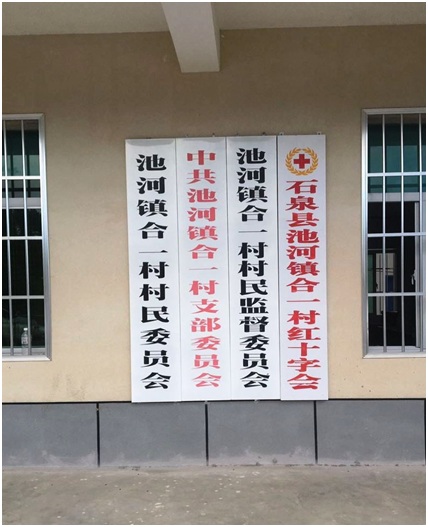 池河镇合一村村民委员会
中共池河镇合一村支部委员会
池河镇合一村村民监督委员会
石泉县池河镇合一村红十字会